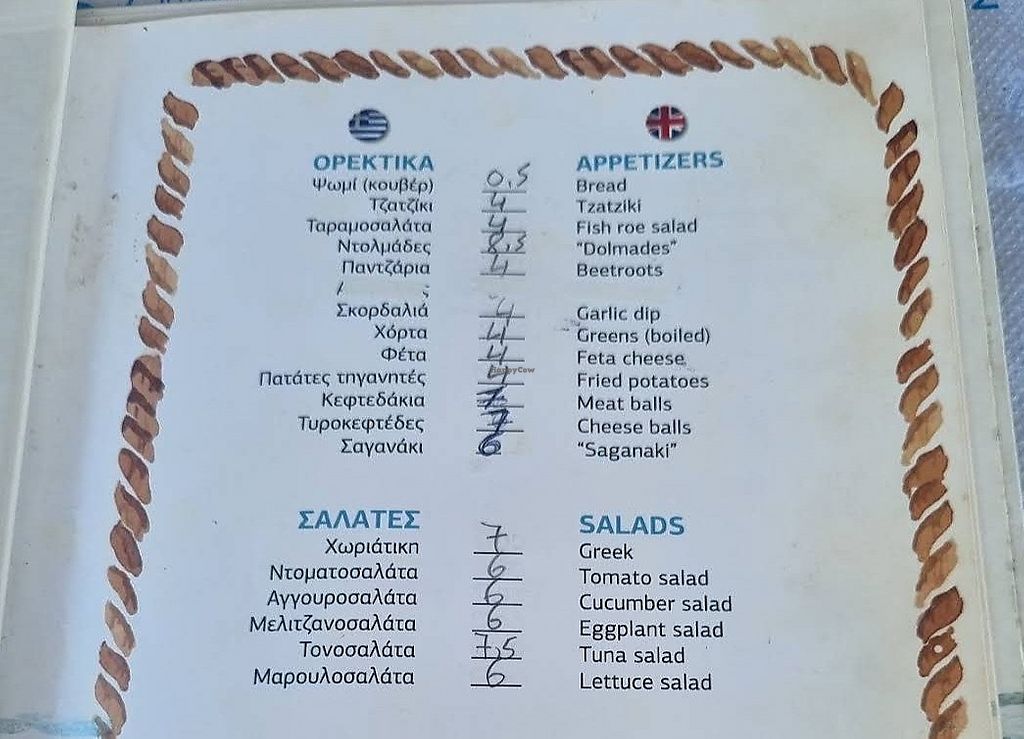 ΟΡΕΚΤΙΚΑ APPETIZERS
Ψωμί (κουβέρ) 0,5 Bread
Τζατζίκι 4 Tzatziki
Ταραμοσαλάτα 4 Fish roe salad
Ντολμάδες 8,5 "Dolmades"
Παντζάρια 4 Beetroots
Σκορδαλιά 4 Garlic dip
Χόρτα 4 Greens (boiled)
Φέτα 4 Feta cheese
Πατάτες τηγανητές 4 Fried potatoes
Κεφτεδάκια 7 Meat balls
Τυροκεφτέδες 7 Cheese balls
Σαγανάκι 6 "Saganaki"
ΣΑΛΑΤΕΣ SALADS
Χωριάτικη 7 Greek
Ντοματοσαλάτα 6 Tomato salad
Αγγουροσαλάτα 6 Cucumber salad
Μελιτζανοσαλάτα 6 Eggplant salad
Τονοσαλάτα 7,5 Tuna salad
Μαρουλοσαλάτα 6 Lettuce salad
HappyCow